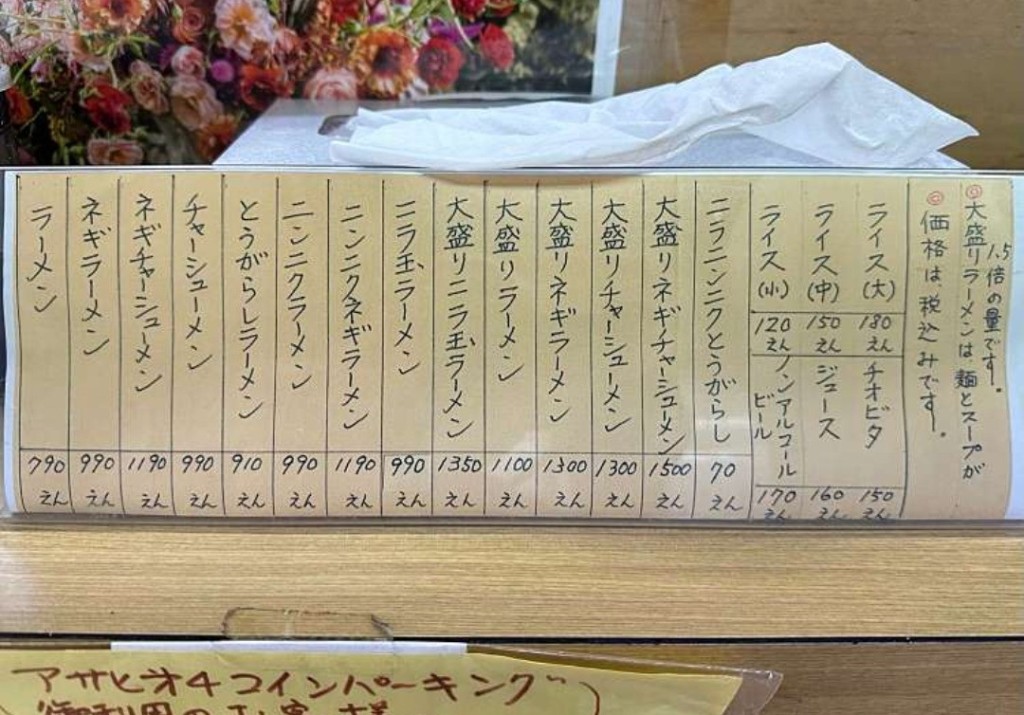 ラーメン
790
えん
ネギラーメン
990
えん
ネギチャーシューメン
1190
えん
チャーシューメン
990
えん
とうがらしラーメン
910
えん
ニンニクラーメン
990
えん
ニンニクネギラーメン
1190
えん
ニラ玉ラーメン
990
えん
大盛りニラ玉ラーメン
1350
えん
大盛りラーメン
1100
えん
大盛りネギラーメン
1300
えん
大盛りチャーシューメン
1300
えん
大盛りネギチャーシューメン
1500
えん
ニラニンニクとうがらし
70
えん
ライス(小)
120
えん
ノンアルコール
ビール
170
えん
ライス(中)
150
えん
ジュース
160
えん
ライス(大)
180
えん
チオビタ
150
えん
◎価格は、税込みです。
◎大盛りラーメンは、麺とスープが
1.5倍の量です。
アサヒオ4コインパーキング
御利用のお客様